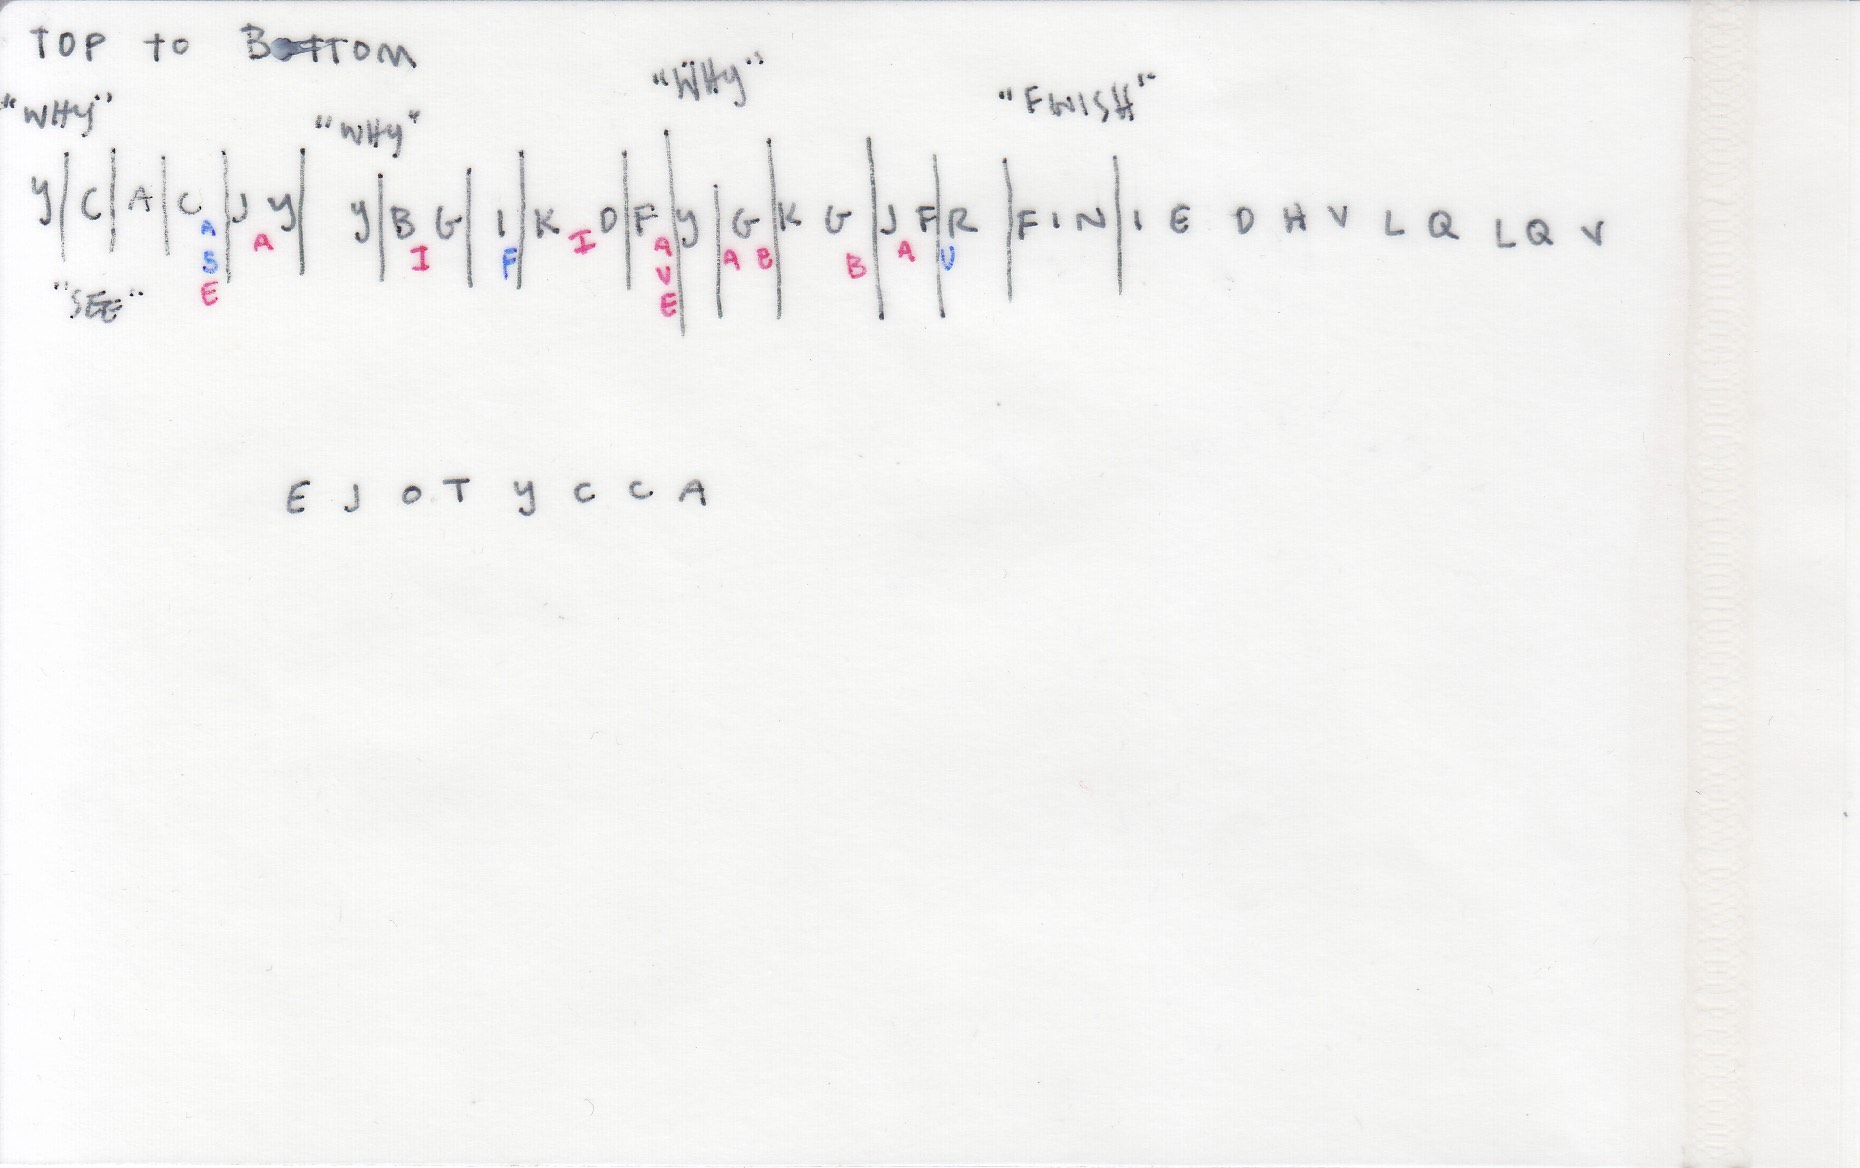 TOP to BOTTOM
"WHY"
"WHY"
"WHY"
"FINISH"
Y|C|A|C|J Y| Y|B G|I|K D|F|Y|G|K G|J F|R|F I N|I E D H V L Q L Q V
A S E
A
I
F
I
A V E
A B
B
A
U
"SEE"
E J O T Y C C A